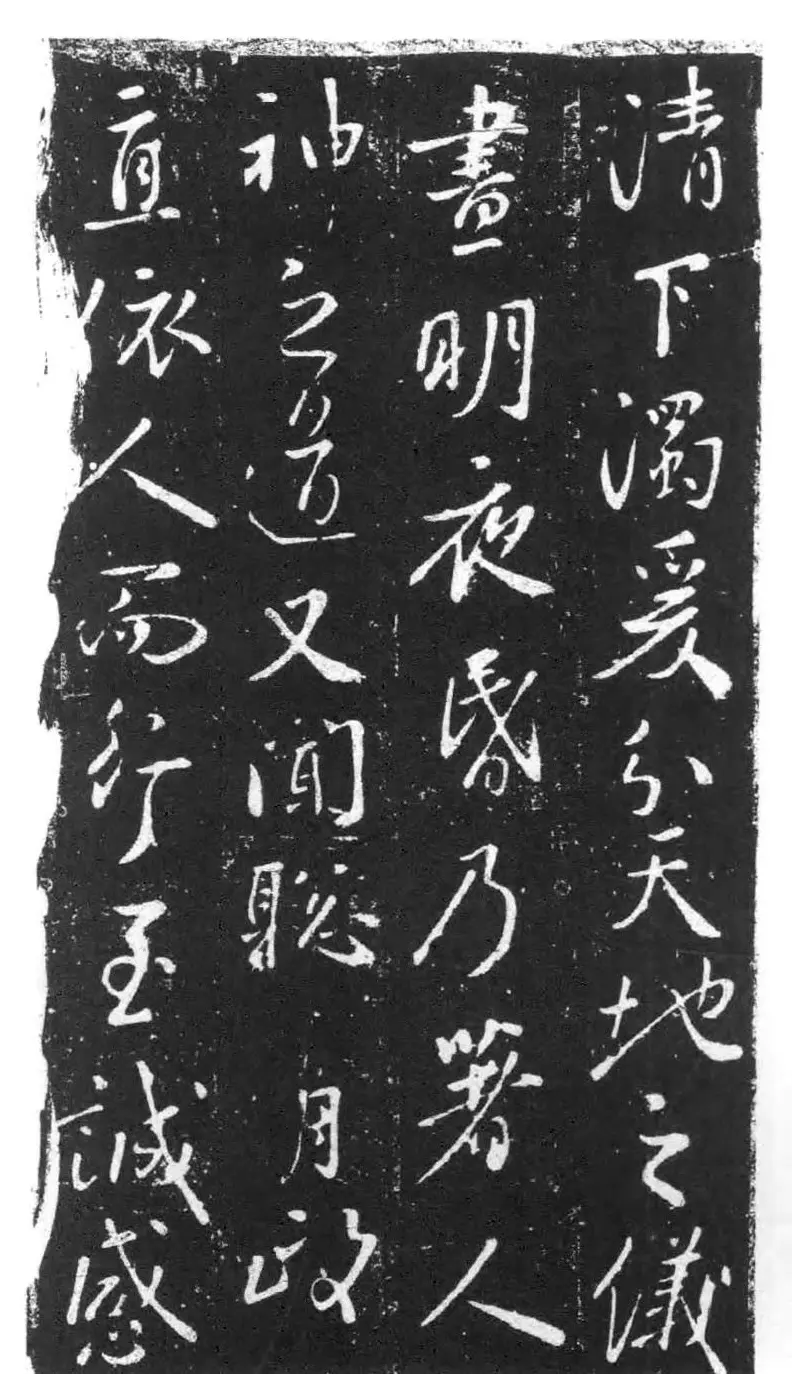 清下濁爰分天地之儀
晝明夜昬乃著人
神之道又聞聰明政
直依人而行至誠感